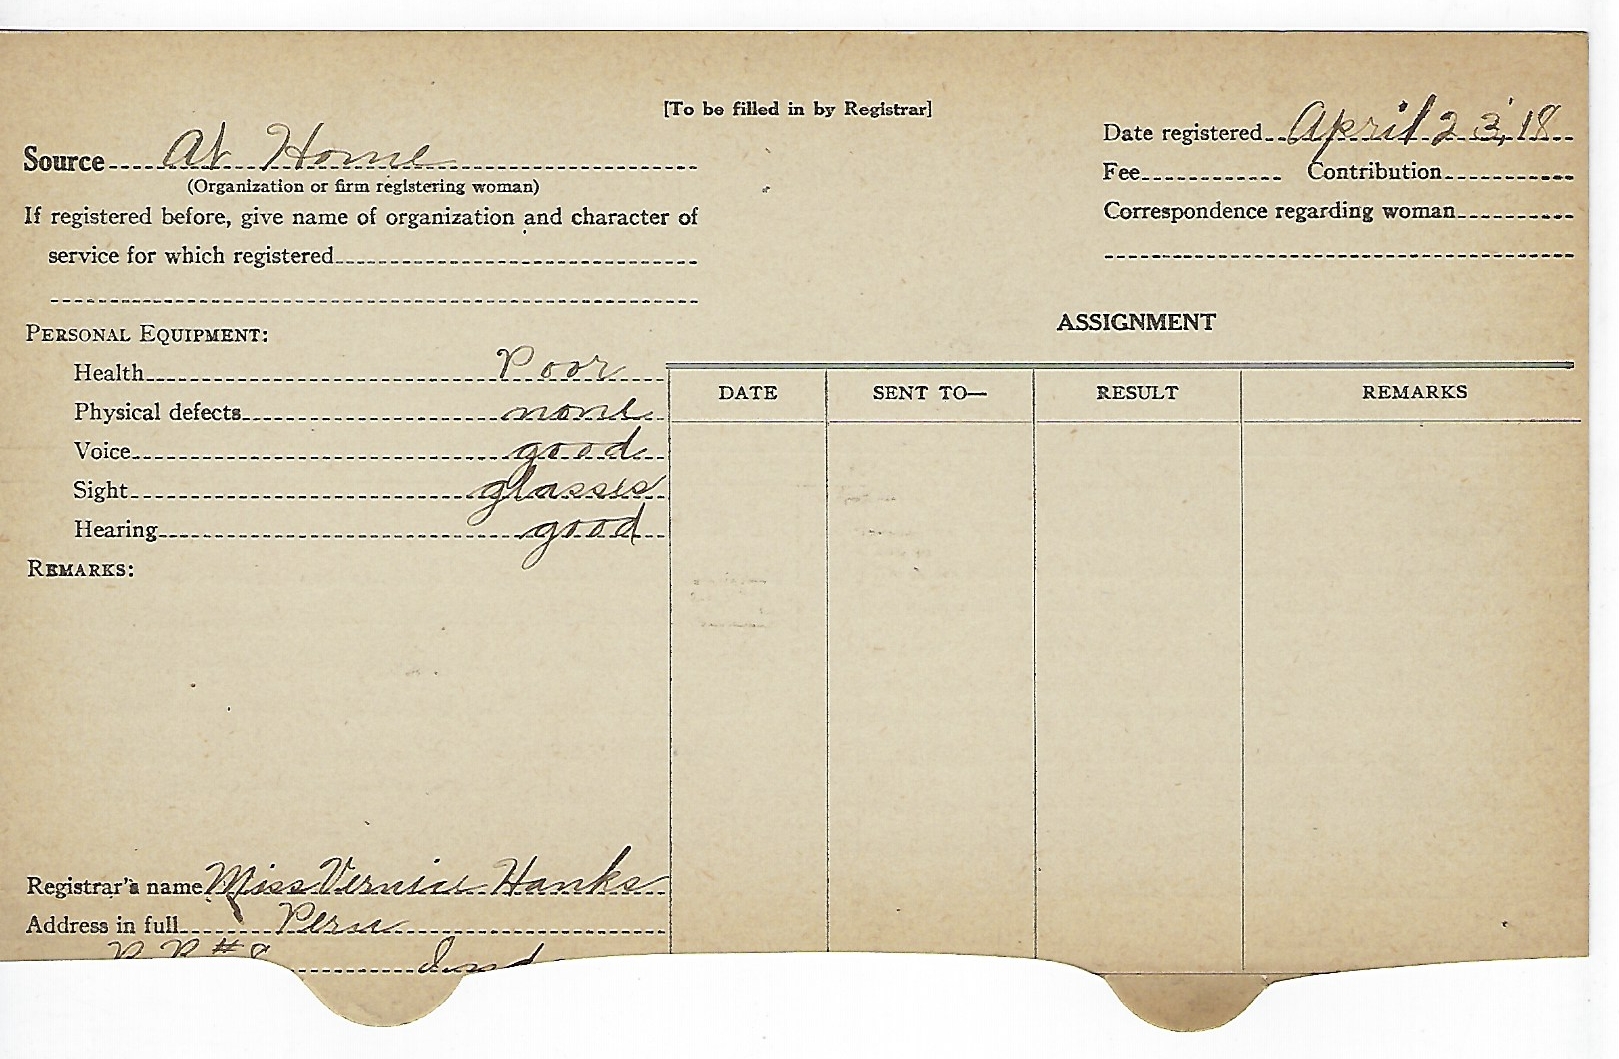 [To be filled in by Registrar]
Date registered April 23, '18
Source At Home
(Organization or firm registering woman)
Fee Contribution
If registered before, give name of organization and character of
Correspondence regarding woman
service for which registered
PERSONAL EQUIPMENT:
ASSIGNMENT
Health Poor
DATE SENT TO— RESULT REMARKS
Physical defects none
Voice good
Sight glasses
Hearing good
REMARKS:
Registrar's name Miss Vernice Hanks
Address in full Peru
R R #8 Ind